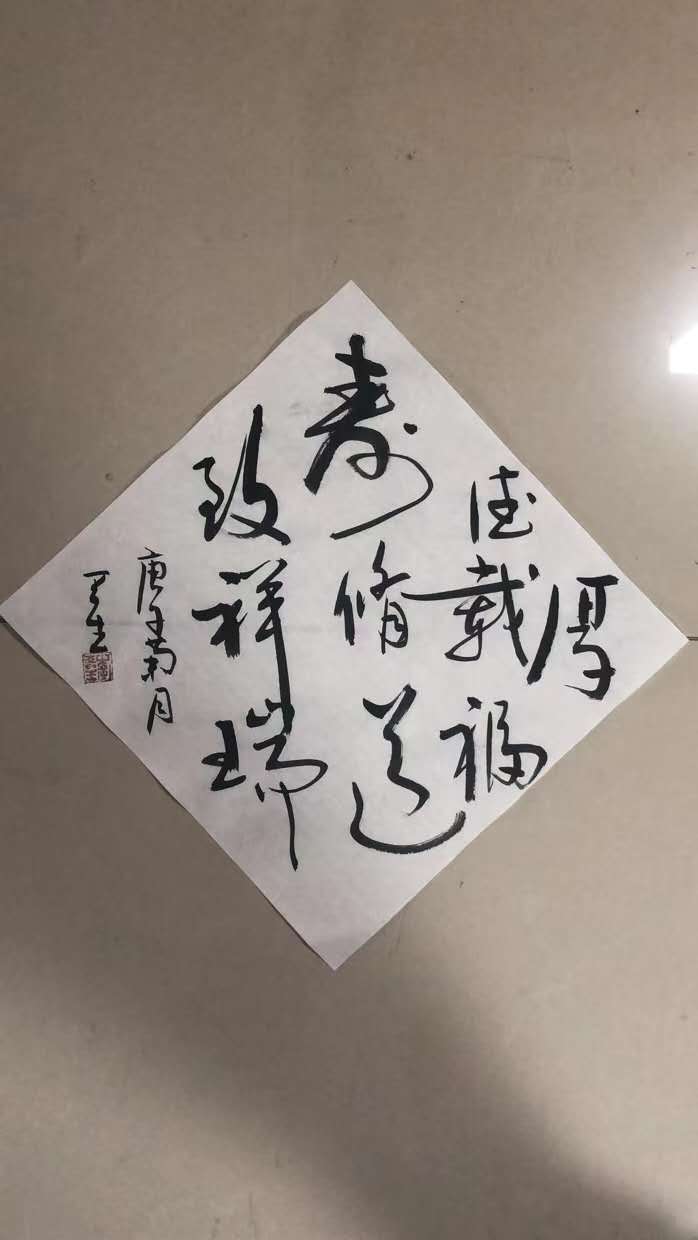 厚
德載福
寿脩道
致祥瑞
庚子菊月